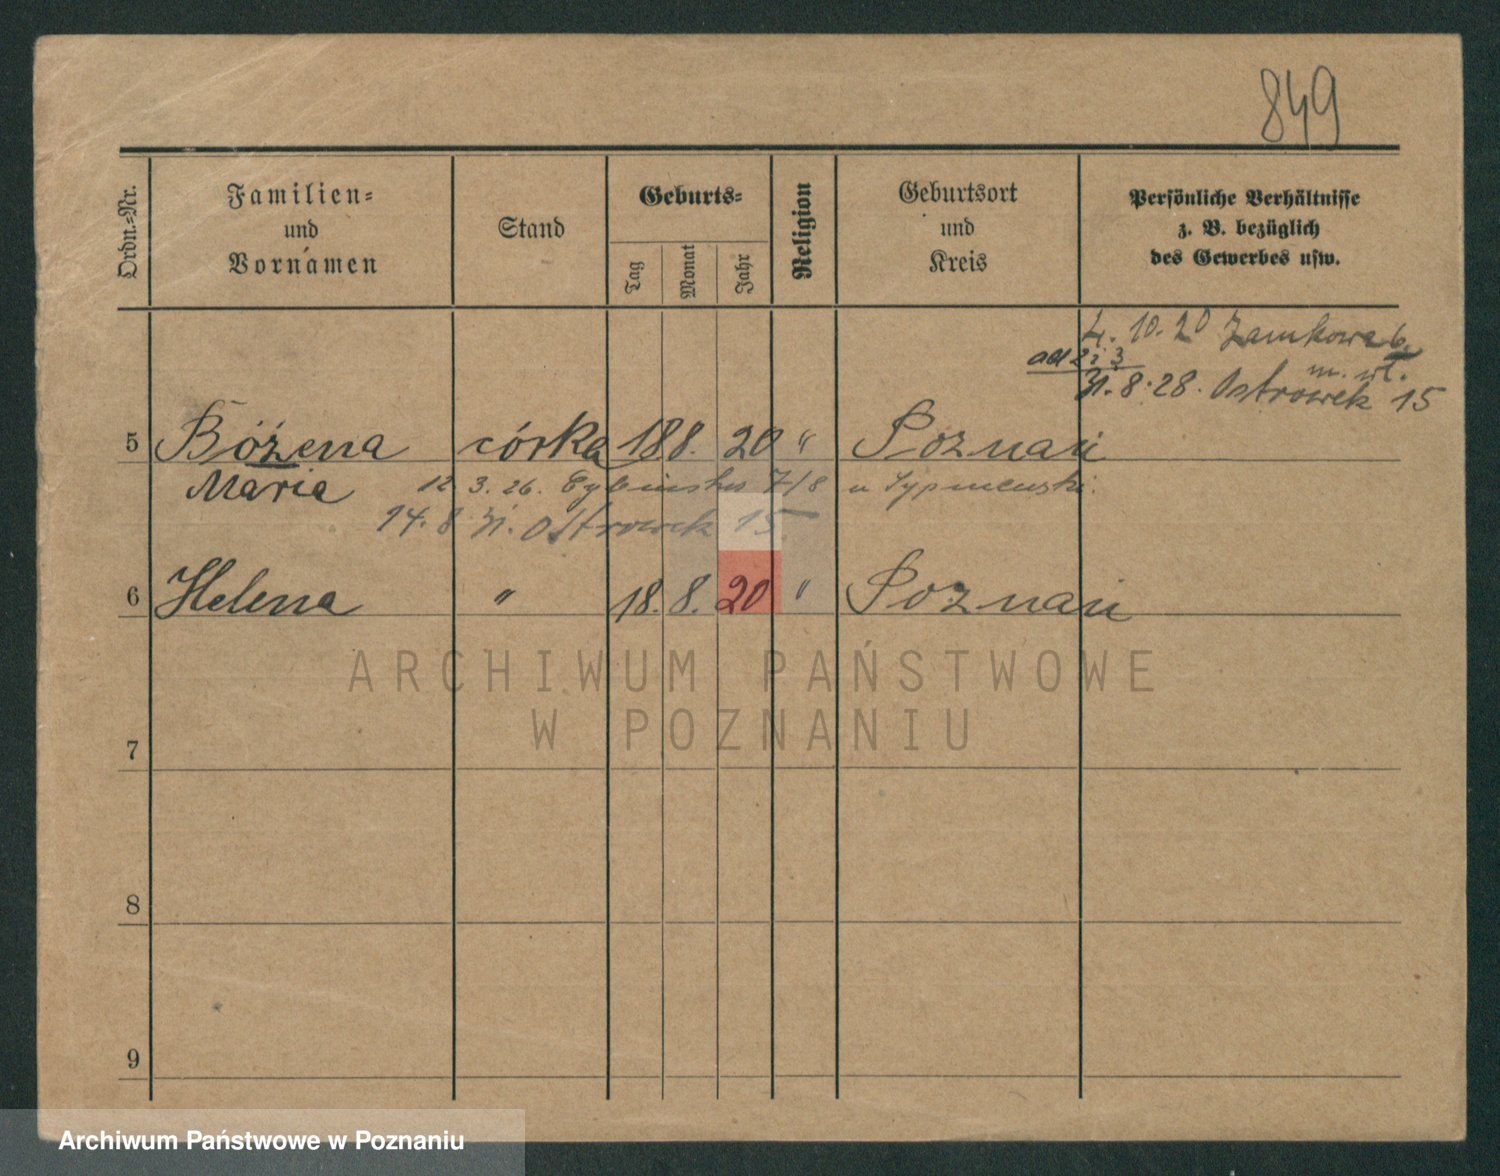 849
Ordn.=Nr.
Familien=
und
Vornamen
Stand
Geburts=
Tag
Monat
Jahr
Religion
Geburtsort
und
Kreis
Persönliche Verhältnisse
z. B. bezüglich
des Gewerbes usw.
4. 10. 20 Zamkowa 6.
ad 2 i 3
m. wł.
31. 8. 28. Ostrowek 15
5 Bożena córka 18 8. 20 " Poznań
Maria
12. 3. 26. 7/8 u
14. 8 31. Ostrowek 15
6 Helena " 18. 8. 20 " Poznań
ARCHIWUM PAŃSTWOWE
W POZNANIU
7
8
9
Archiwum Państwowe w Poznaniu